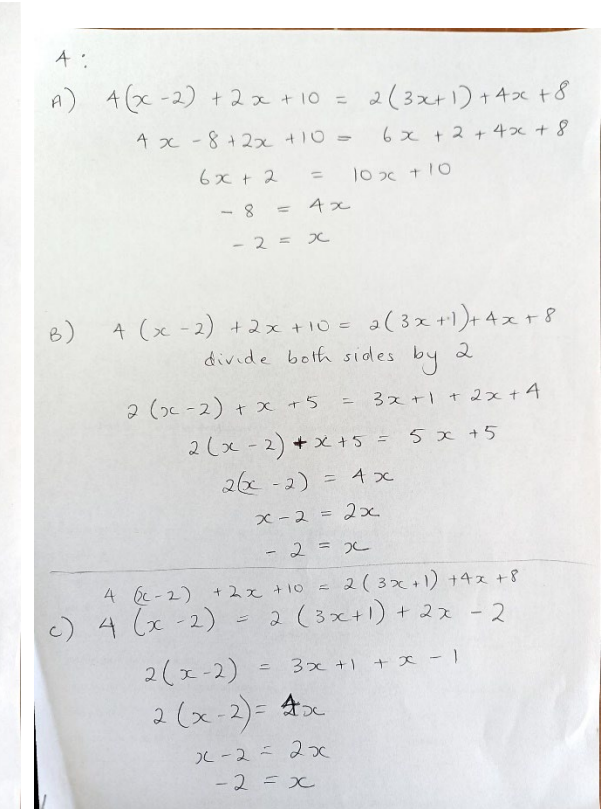 4:
A) 4(x-2) + 2x + 10 = 2(3x+1) + 4x + 8
4x - 8 + 2x + 10 = 6x + 2 + 4x + 8
6x + 2 = 10x + 10
- 8 = 4x
- 2 = x
B) 4 (x - 2) + 2x + 10 = 2(3x+1) + 4x + 8
divide both sides by 2
2 (x-2) + x + 5 = 3x + 1 + 2x + 4
2(x - 2) + x + 5 = 5x + 5
2(x - 2) = 4x
x - 2 = 2x
- 2 = x
4 (x-2) + 2x + 10 = 2(3x+1) + 4x + 8
c) 4 (x - 2) = 2 (3x+1) + 2x - 2
2(x-2) = 3x + 1 + x - 1
2 (x-2) = 4x
x - 2 = 2x
- 2 = x